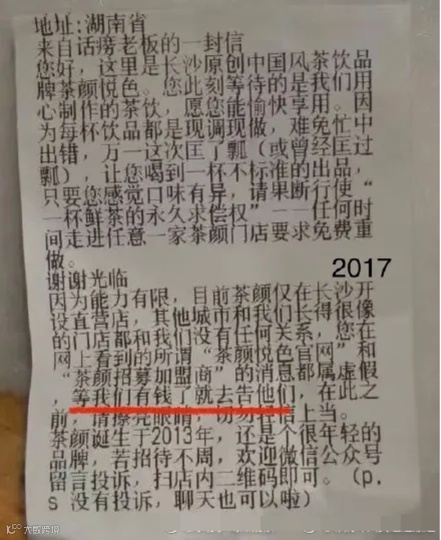 地址:湖南省
来自话痨老板的一封信
您好，这里是长沙原创中国风茶饮品
牌茶颜悦色。您此刻等待的是我们用
心制作的茶饮，愿您能愉快享用。因
为每杯饮品都是现调现做，难免忙中
出错，万一这次匡了瓢（或曾经匡过
瓢），让您喝到一杯不标准的出品，
只要您感觉口味有异，请果断行使“
一杯鲜茶的永久求偿权”——任何时
间走进任意一家茶颜门店要求免费重
做。
2017
谢谢光临
因为能力有限，目前茶颜仅在长沙开
设直营店，其他城市和我们长得很像
的门店都和我们没有任何关系，您在
网上看到的所谓“茶颜悦色官网”和
“茶颜招募加盟商”的消息都属虚假
，等我们有钱了就去告他们，在此之
前，请擦亮眼睛，切勿轻信上当。
茶颜诞生于2013年，还是个很年轻的
品牌，若招待不周，欢迎微信公众号
留言投诉，扫店内二维码即可。（p.
s 没有投诉，聊天也可以啦）
大数跨境